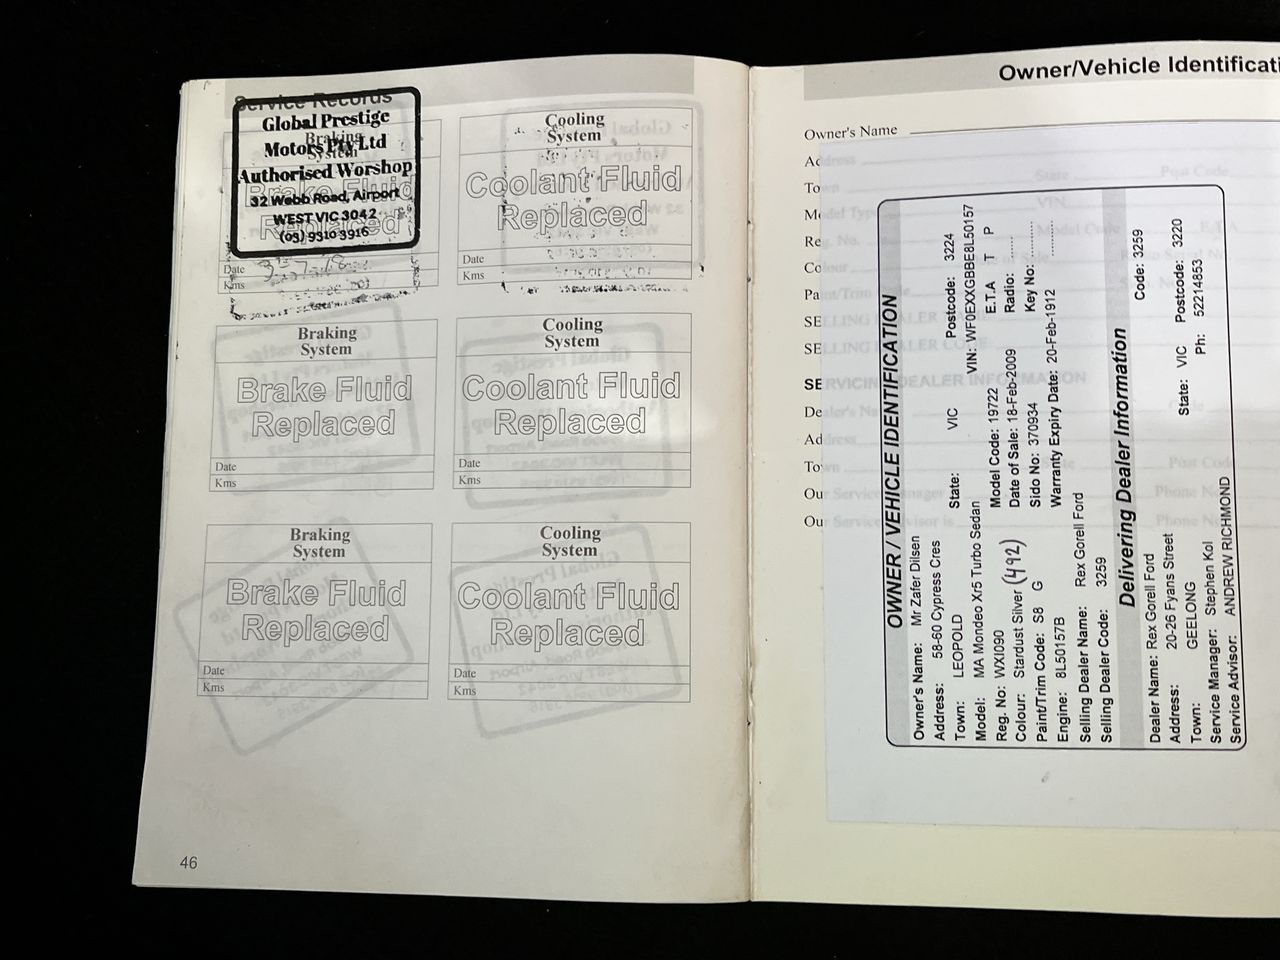 Service Records
Global Prestige
Motors Pty Ltd
Authorised Worshop
32 Webb Road, Airport
WEST VIC 3042
(03) 9310 3916
Braking
System
Brake Fluid
Replaced
Date
Kms
Cooling
System
Coolant Fluid
Replaced
Date
Kms
Braking
System
Brake Fluid
Replaced
Date
Kms
Cooling
System
Coolant Fluid
Replaced
Date
Kms
Braking
System
Brake Fluid
Replaced
Date
Kms
Cooling
System
Coolant Fluid
Replaced
Date
Kms
46
Owner/Vehicle Identificati
Owner's Name
Address
Town
State
Post Code
Model Type
VIN
Reg. No.
Model Code
E.T.A
Colour
Paint/Trim
SELLING DEALER
SELLING DEALER CODE
SERVICING DEALER INFORMATION
Dealer's Na
Ad
Town
State
Post Code
Our Service Manager
Phone N
Our Service Advisor is
Phone N
OWNER / VEHICLE IDENTIFICATION
Owner's Name: Mr Zafer Dilsen
Address: 58-60 Cypress Cres
Town: LEOPOLD State: VIC Postcode: 3224
Model: MA Mondeo Xr5 Turbo Sedan VIN: WF0EXXGBBE8L50157
Reg. No: WXI090 Model Code: 19722 E.T.A T P
Colour: Stardust Silver (492) Date of Sale: 18-Feb-2009 Radio: ........
Paint/Trim Code: S8 G Sido No: 370934 Key No: ........
Engine: 8L50157B Warranty Expiry Date: 20-Feb-1912
Selling Dealer Name: Rex Gorell Ford
Selling Dealer Code: 3259
Delivering Dealer Information
Dealer Name: Rex Gorell Ford Code: 3259
Address: 20-26 Fyans Street
Town: GEELONG State: VIC Postcode: 3220
Service Manager: Stephen Kol Ph: 52214853
Service Advisor: ANDREW RICHMOND